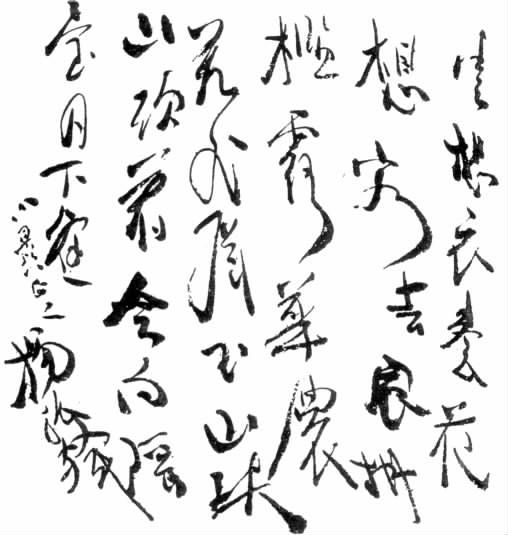 雲想衣裳花
想容春風拂
檻露華濃
若非群玉山
山頭見會向瑤
臺月下逢